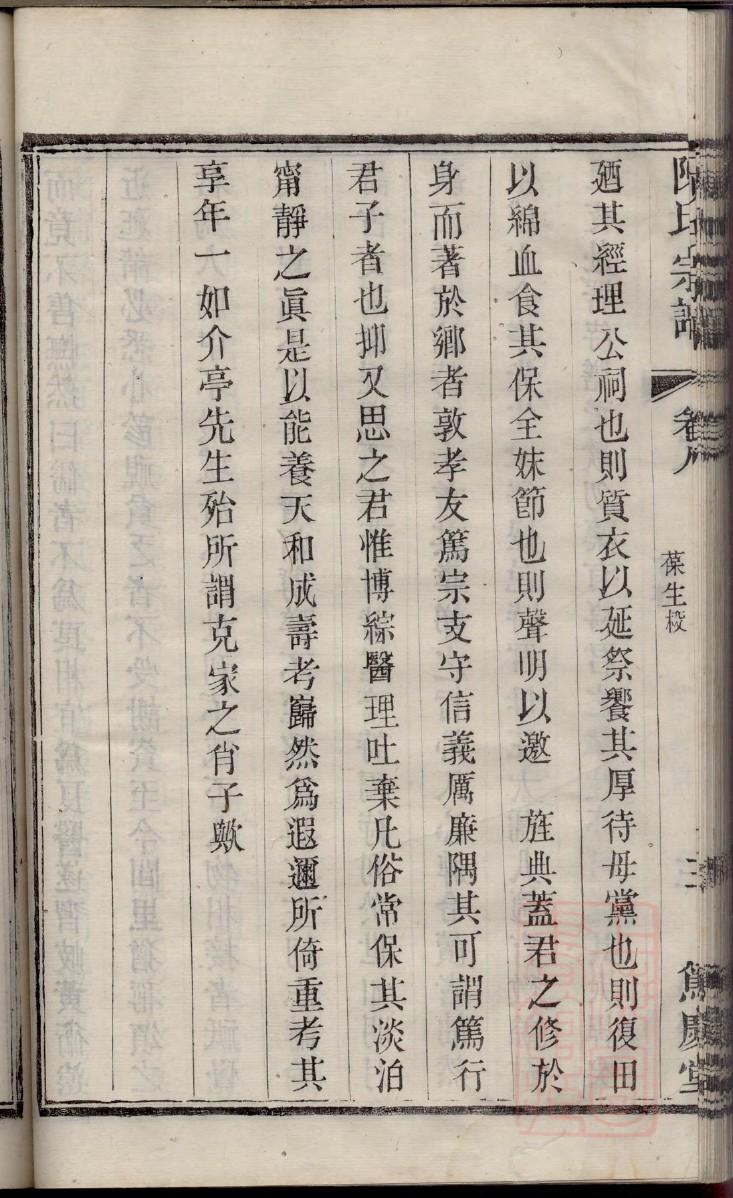 陳氏宗譜
卷八
葆生校
三
篤慶堂
廼其經理公祠也則質衣以延祭饗其厚待母黨也則復田
以綿血食其保全妹節也則聲明以邀　旌典蓋君之修於
身而著於鄉者敦孝友篤宗支守信義厲廉隅其可謂篤行
君子者也抑又思之君惟博綜醫理吐棄凡俗常保其淡泊
甯靜之眞是以能養天和成壽考巋然爲遐邇所倚重考其
享年一如介亭先生殆所謂克家之肖子歟